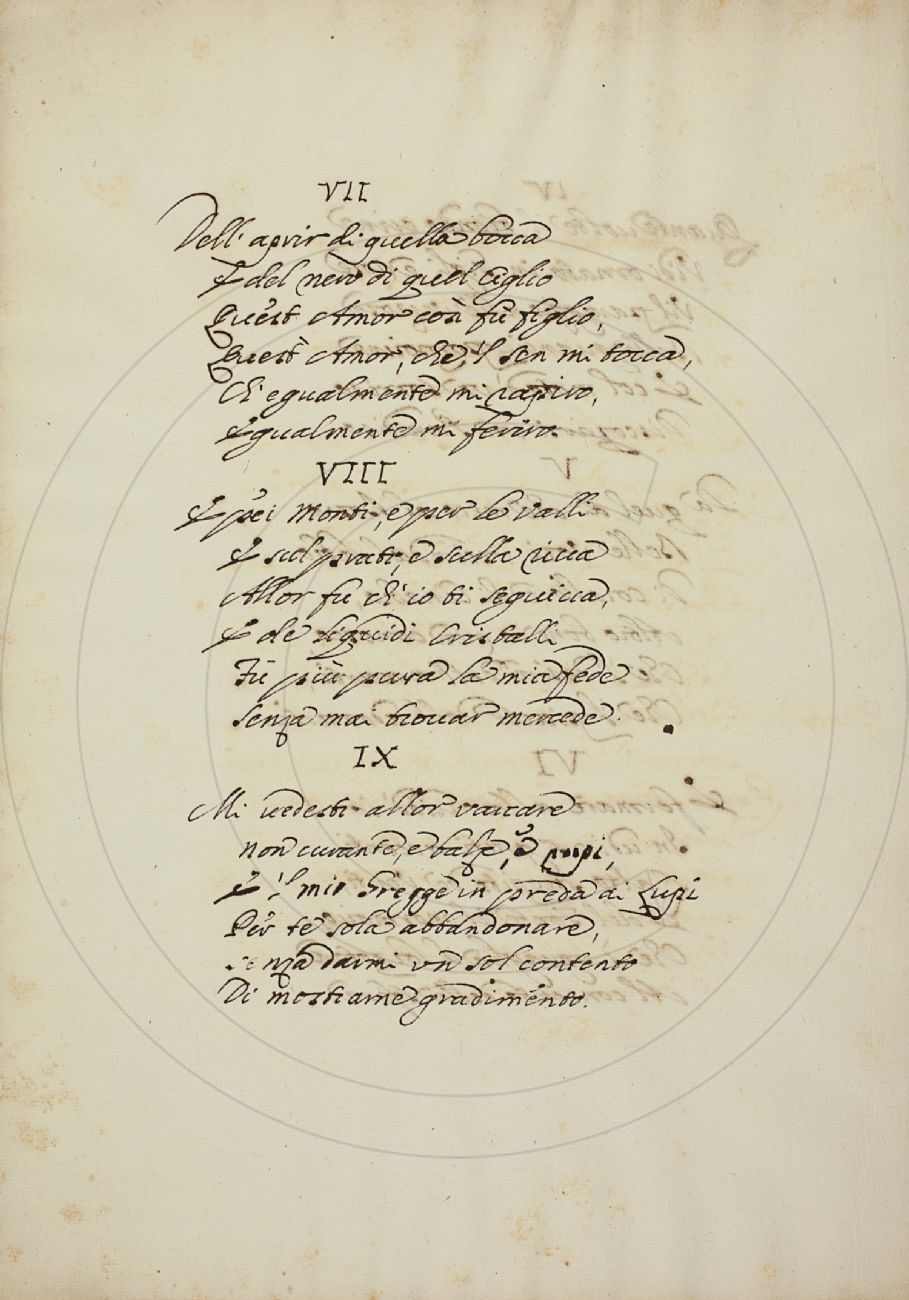 VII
Dell' aprir di quella bocca
E del nero di quel ciglio
Quest Amor così fù figlio,
Quest Amor, che 'l sen mi tocca,
Ch' egualmente mi rapiro,
Egualmente mi feriro.
VIII
E pei Monti, e per le valli
E sul prato, e sulla riva
Allor fu ch' io ti seguiva,
E de liquidi Cristalli
Fù più pura la mia fede
Senza mai trovar mercede.
IX
Mi vedesti allor varcare
non curante, e balze, e rupi,
E 'l mio Gregge in preda ai Lupi
Per te sola abbandonare,
Senza darmi un sol contento
Di mostrarne gradimento.